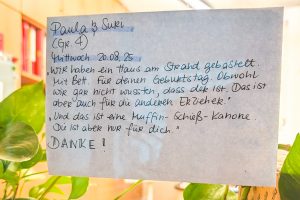 Paula & Suri
(Gr. 4)
Mittwoch 20.08.25
"Wir haben ein Haus am Strand gebastelt.
Mit Bett. Für deinen Geburtstag. Obwohl
wir gar nicht wussten, dass der ist. Das ist
aber auch für die anderen Erzieher."
"Und das ist eine Muffin-Schieß-Kanone.
Die ist aber nur für dich."
DANKE!